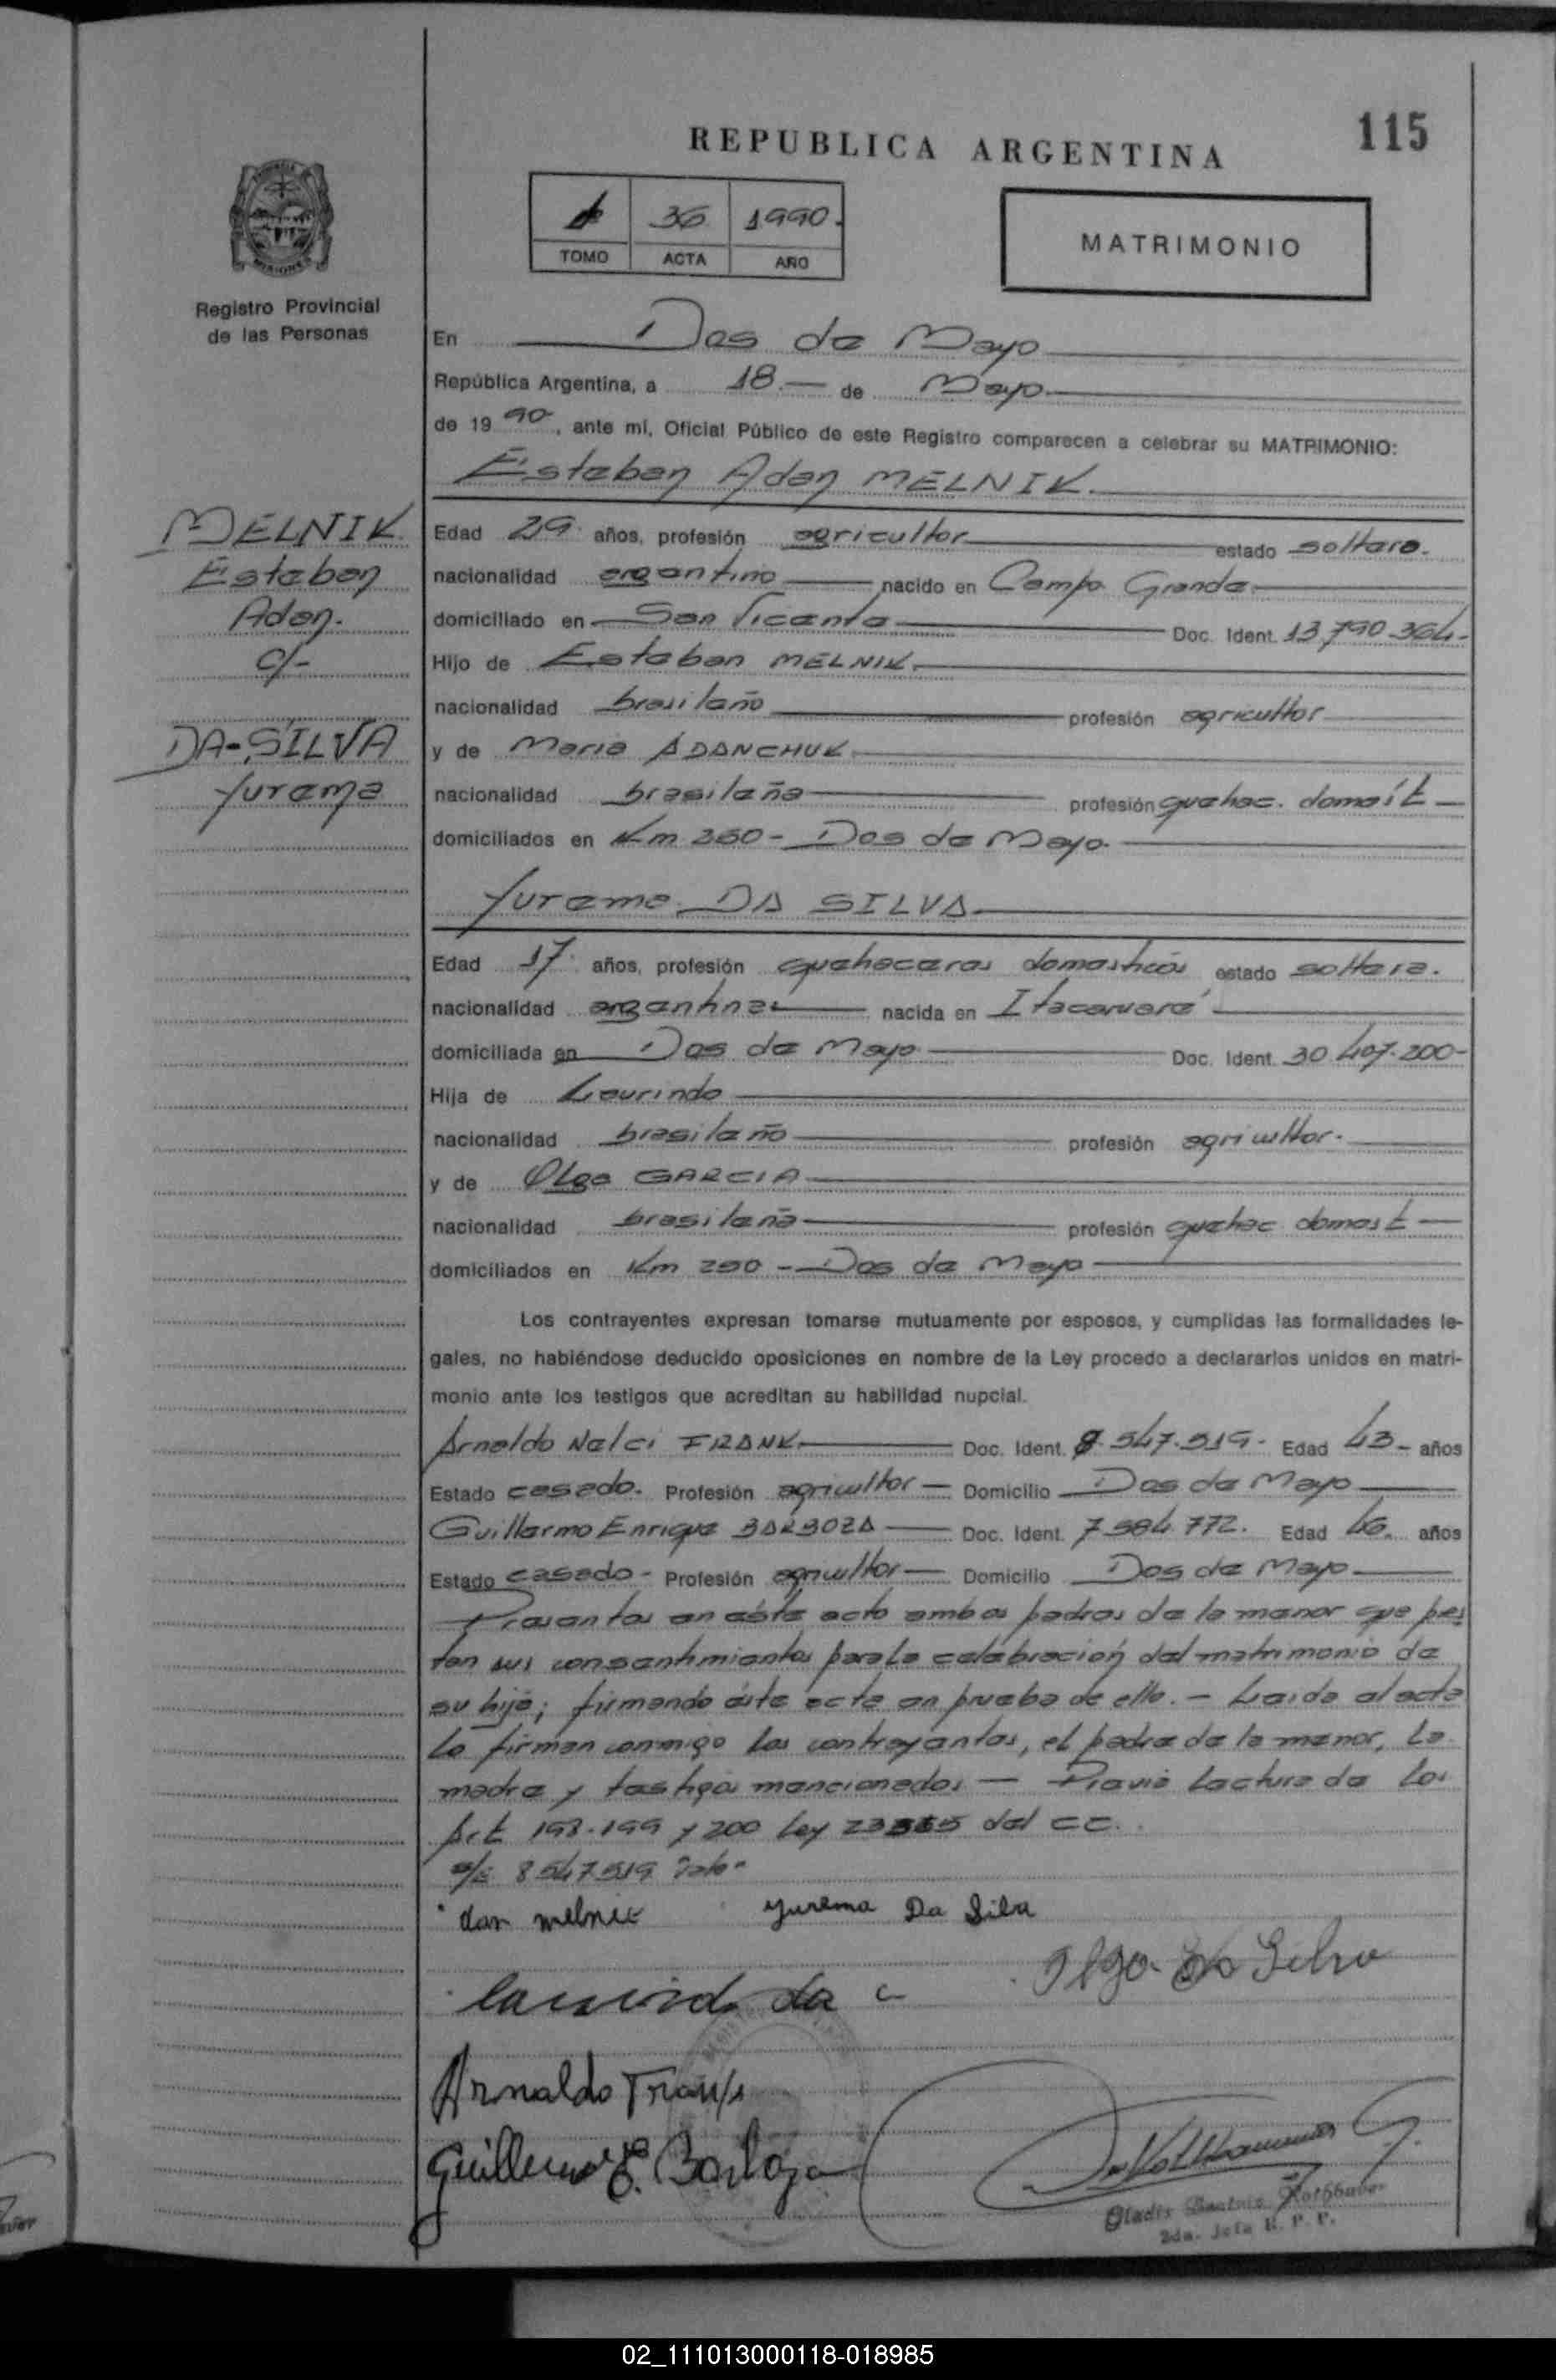 115
REPUBLICA ARGENTINA
36 1990.
TOMO ACTA AÑO
MATRIMONIO
MISIONES
Registro Provincial
de las Personas
En Dos de Mayo
República Argentina, a 18 de Mayo
de 1990, ante mí, Oficial Público de este Registro comparecen a celebrar su MATRIMONIO:
Esteban Adan MELNIK.
MELNIK
Esteban
Adan.
c/-
DA-SILVA
Yurema
Edad 29 años, profesión agricultor estado soltero.
nacionalidad argentino nacido en Campo Grande
domiciliado en San Vicente Doc. Ident. 13.790.364-
Hijo de Esteban MELNIK.
nacionalidad brasileño profesión agricultor
y de Maria ADANCHUK
nacionalidad brasileña profesión quehac. domést
domiciliados en Km 260 - Dos de Mayo.
Yurema DA SILVA
Edad 17 años, profesión quehaceres domesticos estado soltera.
nacionalidad argentina nacida en Itacaruaré
domiciliada en Dos de Mayo Doc. Ident. 30.407.200-
Hija de Laurindo
nacionalidad brasileño profesión agricultor.
y de Olga GARCIA
nacionalidad brasileña profesión quehac domest
domiciliados en Km 290 - Dos de Mayo
Los contrayentes expresan tomarse mutuamente por esposos, y cumplidas las formalidades le-
gales, no habiéndose deducido oposiciones en nombre de la Ley procedo a declararlos unidos en matri-
monio ante los testigos que acreditan su habilidad nupcial.
Arnaldo Nelci FRANK Doc. Ident. 8.547.519- Edad 43- años
Estado casado. Profesión agricultor Domicilio Dos de Mayo
Guillermo Enrique BARBOZA Doc. Ident. 7.584.772. Edad 46. años
Estado casado - Profesión agricultor Domicilio Dos de Mayo
Presentes en éste acto ambos padres de la menor que pres
tan sus consentimientos para la celebración del matrimonio de
su hija; firmando éste acta en prueba de ello. - Leida el acta
la firman conmigo los contrayentes, el padre de la menor, la
madre y testigos mencionados - Previa lectura de los
Art 198.199 y 200 Ley 23515 del CC.
s/e 8547519 Vale
dan melnic Yurema Da Silva
Olga Da Silva
laurindo da
Arnaldo Frank
Guillermo E. Barboza
Gladis Beatriz
2da. Jefe R. P. P.
02_111013000118-018985